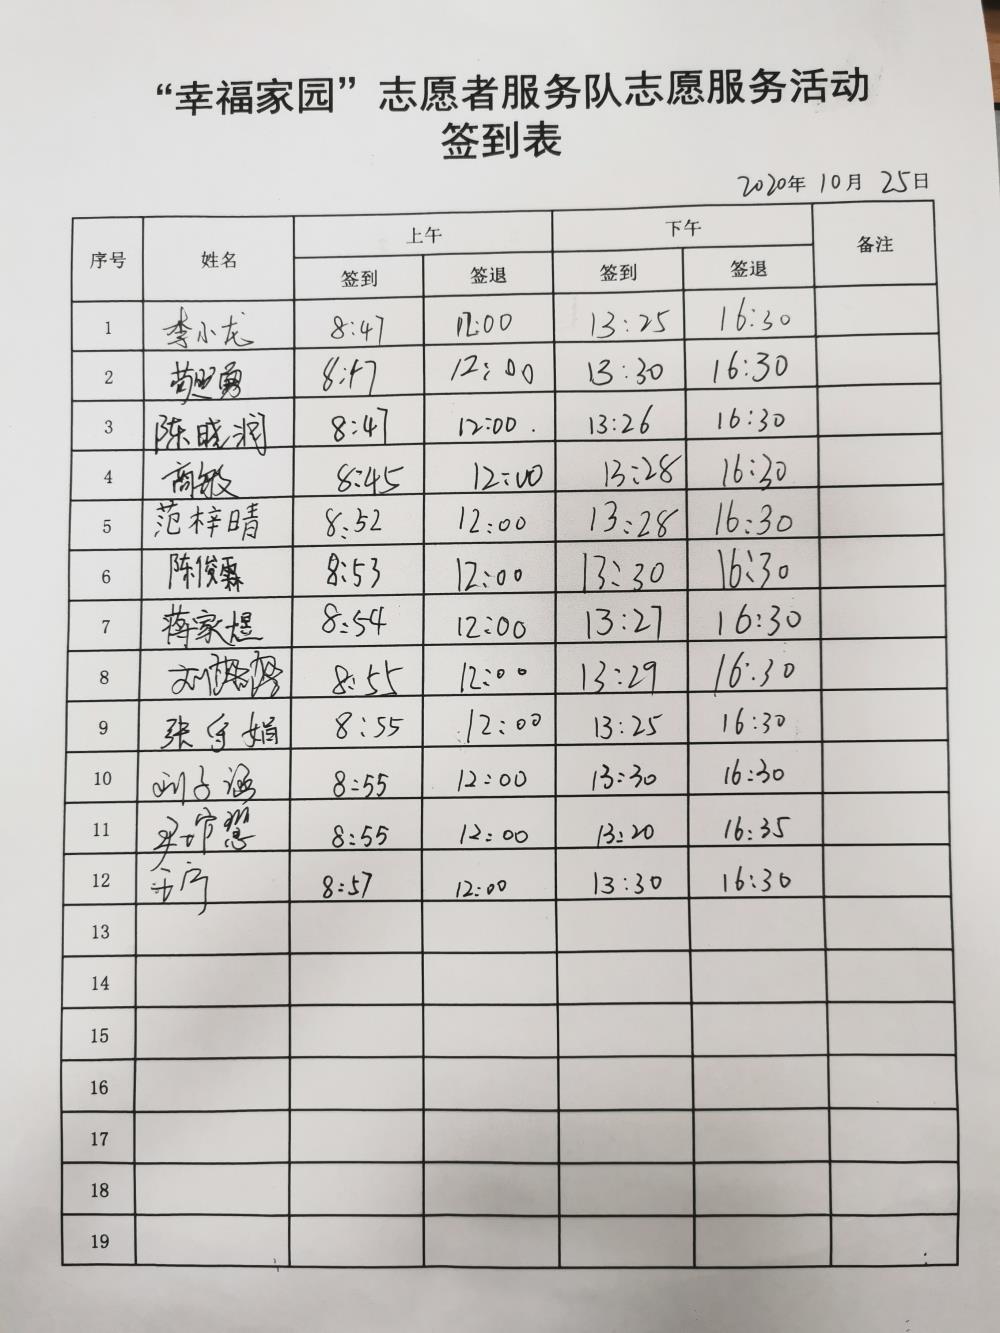 “幸福家园”志愿者服务队志愿服务活动
签到表
2020年 10月 25日
序号 姓名 上午 下午 备注
签到 签退 签到 签退
1 李小龙 8:47 12:00 13:25 16:30
2 8:47 12:00 13:30 16:30
3 陈晓润 8:47 12:00. 13:26 16:30
4 商敏 8:45 12:00 13:28 16:30
5 范梓晴 8:52 12:00 13:28 16:30
6 陈俊霖 8:53 12:00 13:30 16:30
7 蒋家煜 8:54 12:00 13:27 16:30
8 刘 8:55 12:00 13:29 16:30
9 张 娟 8:55 12:00 13:25 16:30
10 刘子涵 8:55 12:00 13:30 16:30
11 8:55 12:00 13:20 16:35
12 8:57 12:00 13:30 16:30
13
14
15
16
17
18
19